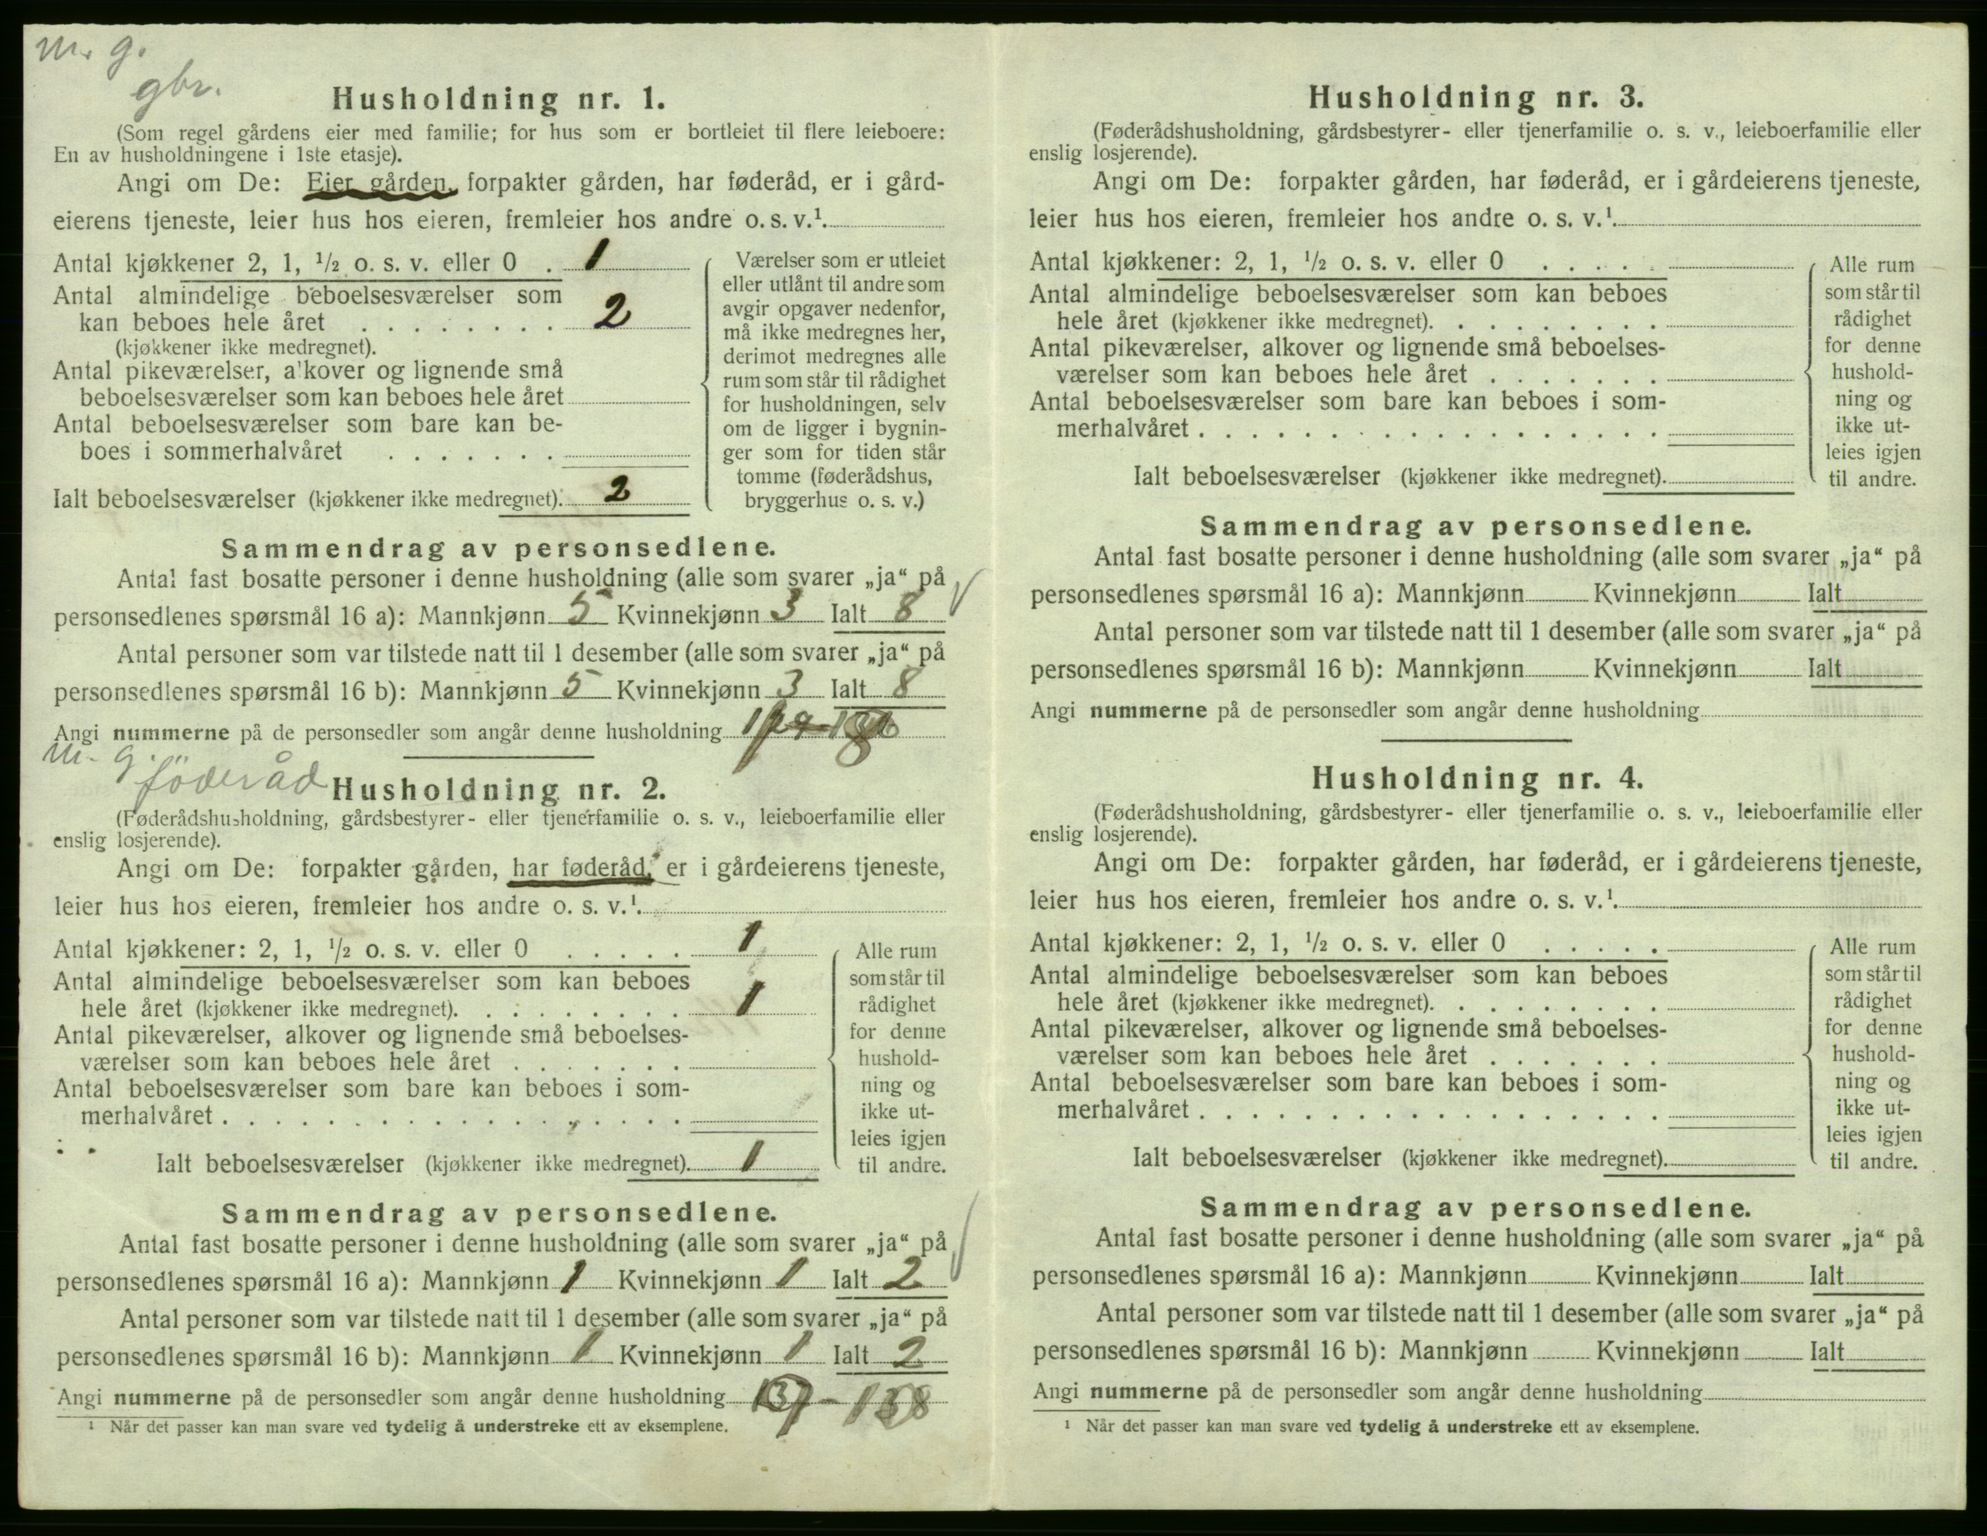 m. g.
gbr.
Husholdning nr. 1.
(Som regel gårdens eier med familie; for hus som er bortleiet til flere leieboere:
En av husholdningene i 1ste etasje).
Angi om De: Eier gården, forpakter gården, har føderåd, er i gård-
eierens tjeneste, leier hus hos eieren, fremleier hos andre o. s. v.¹
Antal kjøkkener 2, 1, ½ o. s. v. eller 0 . 1
Antal almindelige beboelsesværelser som
kan beboes hele året . . . . . . . . 2
(kjøkkener ikke medregnet).
Antal pikeværelser, a'kover og lignende små
beboelsesværelser som kan beboes hele året
Antal beboelsesværelser som bare kan be-
boes i sommerhalvåret . . . . . . .
Ialt beboelsesværelser (kjøkkener ikke medregnet). 2
Værelser som er utleiet
eller utlånt til andre som
avgir opgaver nedenfor,
må ikke medregnes her,
derimot medregnes alle
rum som står til rådighet
for husholdningen, selv
om de ligger i bygnin-
ger som for tiden står
tomme (føderådshus,
bryggerhus o. s. v.)
Sammendrag av personsedlene.
Antal fast bosatte personer i denne husholdning (alle som svarer „ja“ på
personsedlenes spørsmål 16 a): Mannkjønn 5 Kvinnekjønn 3 Ialt 8
Antal personer som var tilstede natt til 1 desember (alle som svarer „ja“ på
personsedlenes spørsmål 16 b): Mannkjønn 5 Kvinnekjønn 3 Ialt 8
Angi nummerne på de personsedler som angår denne husholdning
m. g.
føderåd
Husholdning nr. 2.
(Føderådshusholdning, gårdsbestyrer- eller tjenerfamilie o. s. v., leieboerfamilie eller
enslig losjerende).
Angi om De: forpakter gården, har føderåd, er i gårdeierens tjeneste,
leier hus hos eieren, fremleier hos andre o. s. v.¹.
Antal kjøkkener: 2, 1, ½ o. s. v. eller 0 . . . . . 1
Antal almindelige beboelsesværelser som kan beboes
hele året (kjøkkener ikke medregnet). . . . . . . . . 1
Antal pikeværelser, alkover og lignende små beboelses-
værelser som kan beboes hele året . . . . . . .
Antal beboelsesværelser som bare kan beboes i som-
merhalvåret . . . . . . . . . . . . . . . . . .
Ialt beboelsesværelser (kjøkkener ikke medregnet). 1
Alle rum
som står til
rådighet
for denne
hushold-
ning og
ikke ut-
leies igjen
til andre.
Sammendrag av personsedlene.
Antal fast bosatte personer i denne husholdning (alle som svarer „ja“ på
personsedlenes spørsmål 16 a): Mannkjønn 1 Kvinnekjønn 1 Ialt 2
Antal personer som var tilstede natt til 1 desember (alle som svarer „ja“ på
personsedlenes spørsmål 16 b): Mannkjønn 1 Kvinnekjønn 1 Ialt 2
Angi nummerne på de personsedler som angår denne husholdning
¹ Når det passer kan man svare ved tydelig å understreke ett av eksemplene.
Husholdning nr. 3.
(Føderådshusholdning, gårdsbestyrer- eller tjenerfamilie o. s. v., leieboerfamilie eller
enslig losjerende).
Angi om De: forpakter gården, har føderåd, er i gårdeierens tjeneste,
leier hus hos eieren, fremleier hos andre o. s. v.¹.
Antal kjøkkener: 2, 1, ½ o. s. v. eller 0 . . . . .
Antal almindelige beboelsesværelser som kan beboes
hele året (kjøkkener ikke medregnet). . . . . . . . .
Antal pikeværelser, alkover og lignende små beboelses-
værelser som kan beboes hele året . . . . . . .
Antal beboelsesværelser som bare kan beboes i som-
merhalvåret . . . . . . . . . . . . . . . . . .
Ialt beboelsesværelser (kjøkkener ikke medregnet).
Alle rum
som står til
rådighet
for denne
hushold-
ning og
ikke ut-
leies igjen
til andre.
Sammendrag av personsedlene.
Antal fast bosatte personer i denne husholdning (alle som svarer „ja“ på
personsedlenes spørsmål 16 a): Mannkjønn Kvinnekjønn Ialt
Antal personer som var tilstede natt til 1 desember (alle som svarer „ja“ på
personsedlenes spørsmål 16 b): Mannkjønn Kvinnekjønn Ialt
Angi nummerne på de personsedler som angår denne husholdning
Husholdning nr. 4.
(Føderådshusholdning, gårdsbestyrer- eller tjenerfamilie o. s. v., leieboerfamilie eller
enslig losjerende).
Angi om De: forpakter gården, har føderåd, er i gårdeierens tjeneste,
leier hus hos eieren, fremleier hos andre o. s. v.¹.
Antal kjøkkener: 2, 1, ½ o. s. v. eller 0 . . . . .
Antal almindelige beboelsesværelser som kan beboes
hele året (kjøkkener ikke medregnet). . . . . . . . .
Antal pikeværelser, alkover og lignende små beboelses-
værelser som kan beboes hele året . . . . . . .
Antal beboelsesværelser som bare kan beboes i som-
merhalvåret . . . . . . . . . . . . . . . . . .
Ialt beboelsesværelser (kjøkkener ikke medregnet).
Alle rum
som står til
rådighet
for denne
hushold-
ning og
ikke ut-
leies igjen
til andre.
Sammendrag av personsedlene.
Antal fast bosatte personer i denne husholdning (alle som svarer „ja“ på
personsedlenes spørsmål 16 a): Mannkjønn Kvinnekjønn Ialt
Antal personer som var tilstede natt til 1 desember (alle som svarer „ja“ på
personsedlenes spørsmål 16 b): Mannkjønn Kvinnekjønn Ialt
Angi nummerne på de personsedler som angår denne husholdning
¹ Når det passer kan man svare ved tydelig å understreke ett av eksemplene.